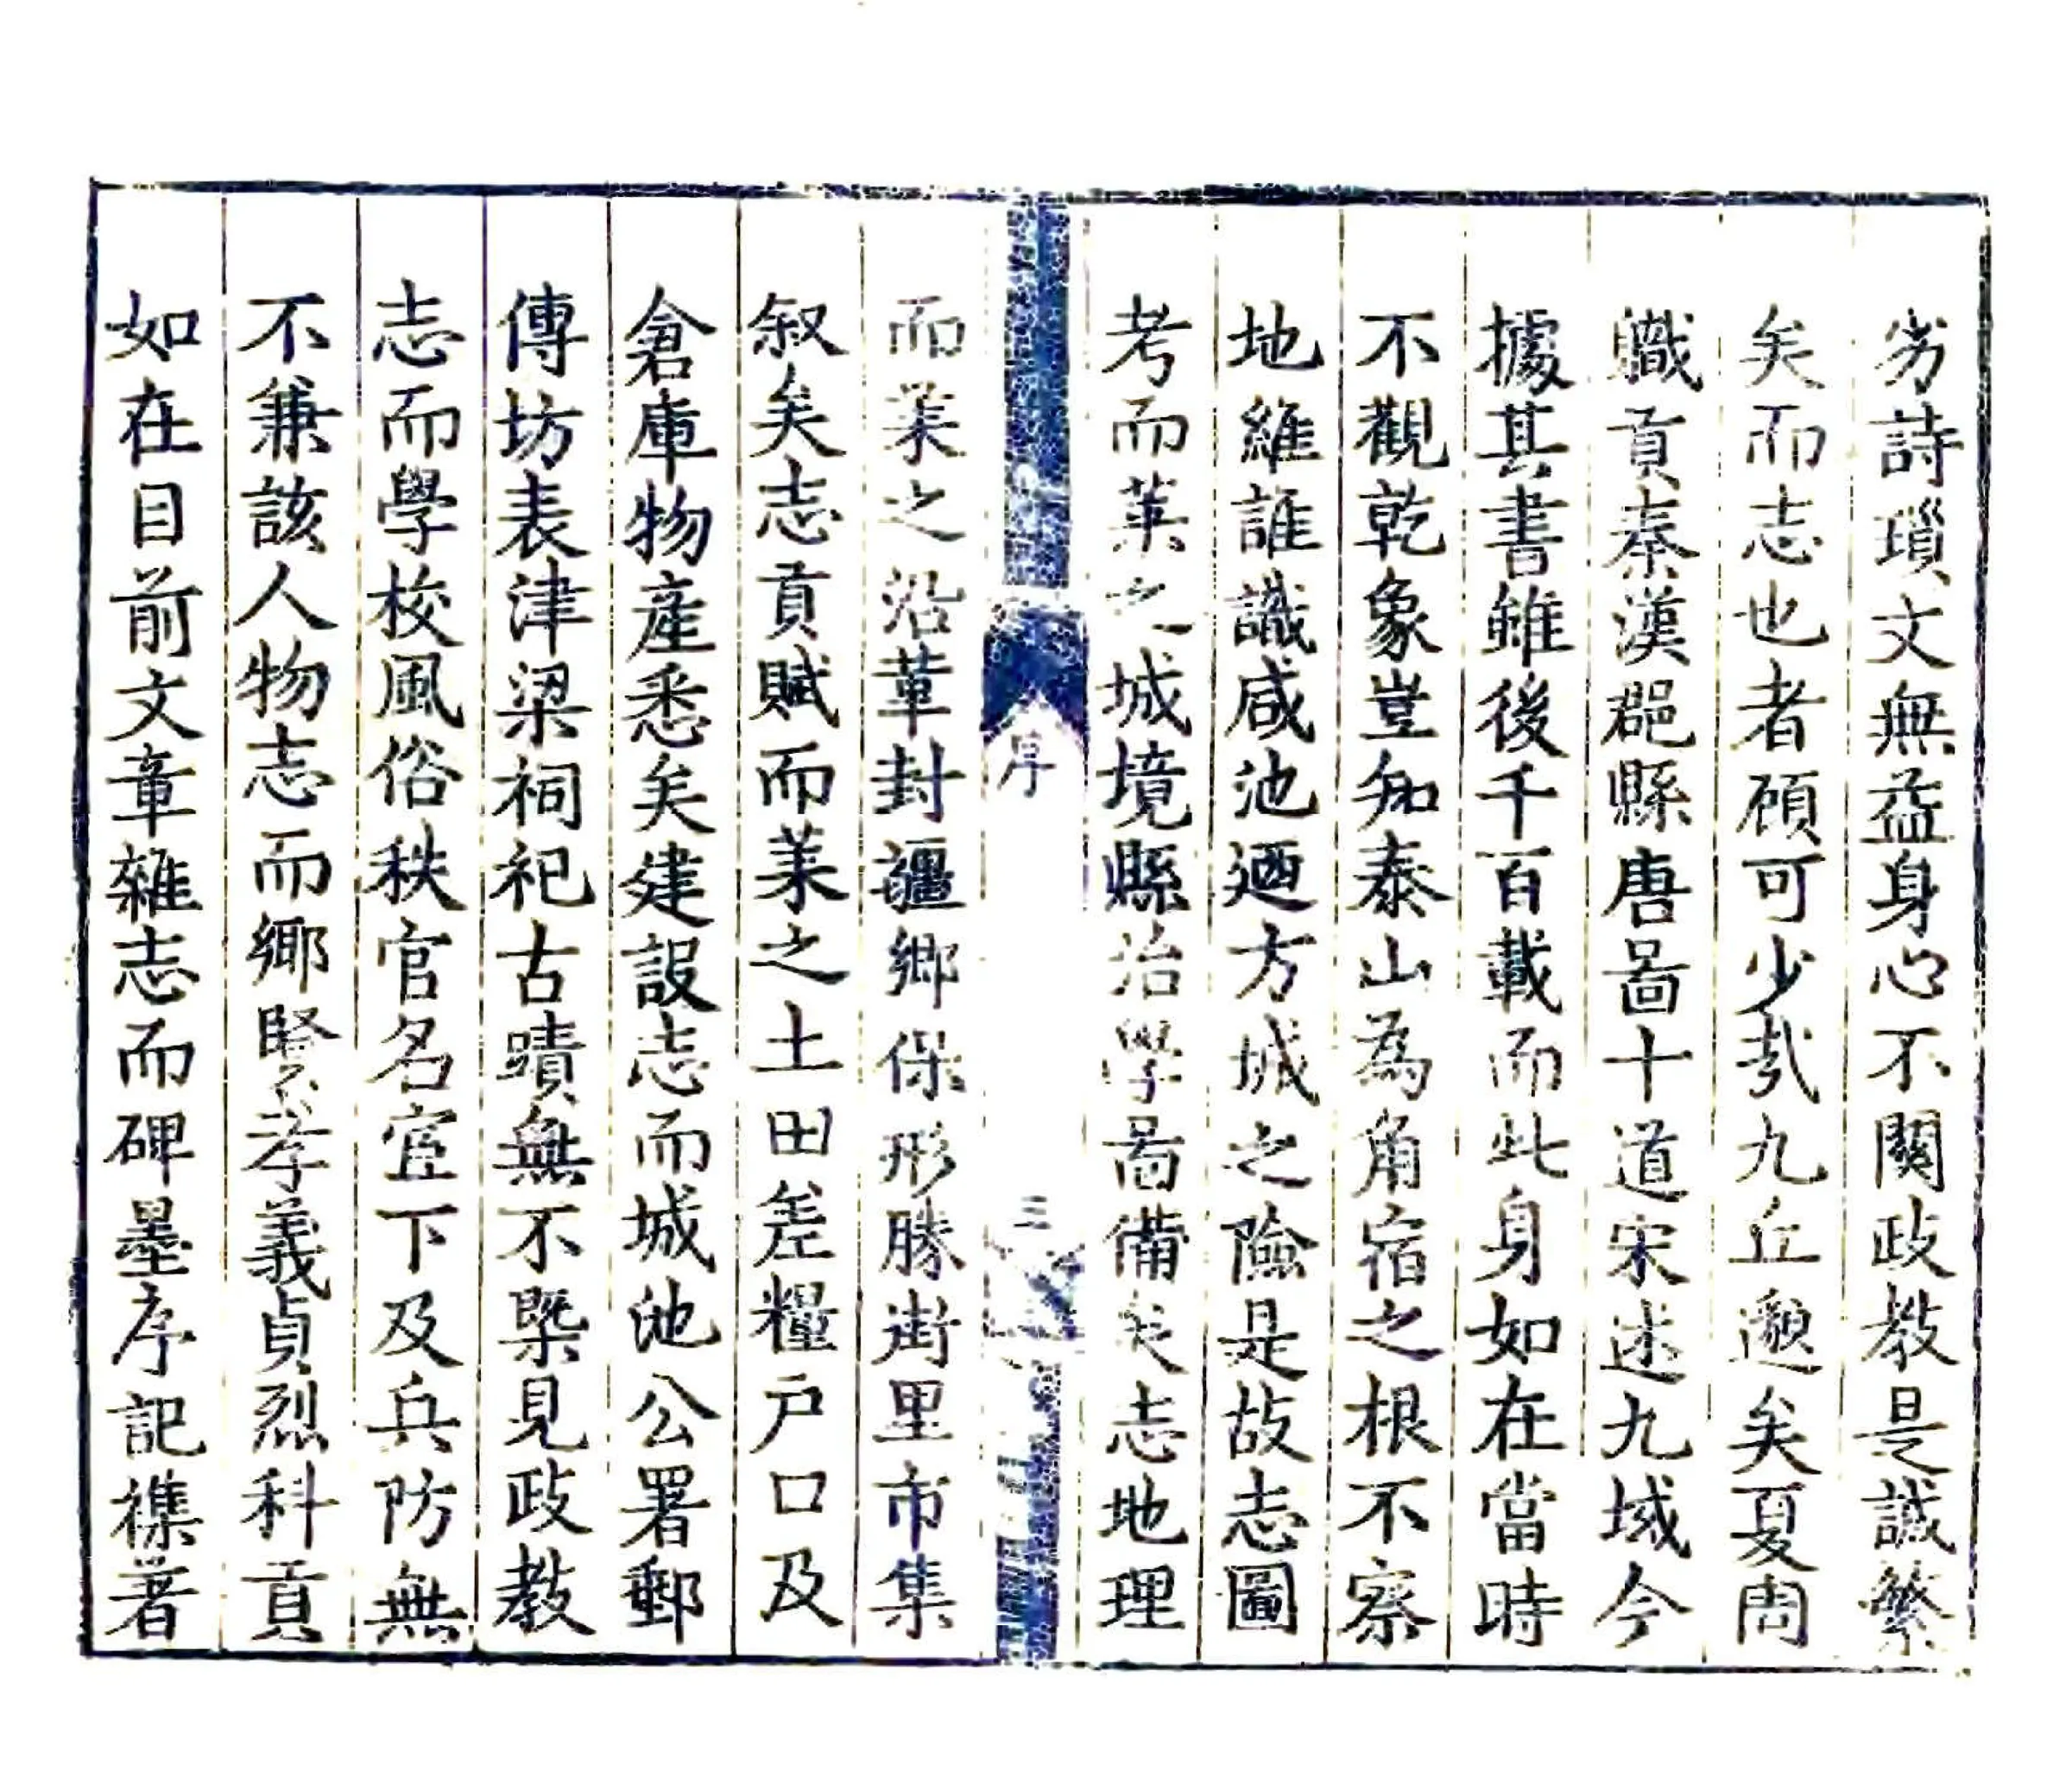 劣詩瑣文無益身心不關政教是誠繁
矣而志也者顧可少哉九丘邈矣夏周
職貢秦漢郡縣唐啚十道宋述九域今
據其書雖後千百載而此身如在當時
不觀乾象豈知泰山為角宿之根不察
地維誰識咸池迺方城之險是故志圖
考而萊之城境縣治學啚備矣志地理
序
三
而萊之沿革封疆鄉保形勝街里市集
叙矣志貢賦而萊之土田差糧户口及
倉庫物產悉矣建設志而城池公署郵
傳坊表津梁祠祀古蹟無不槩見政教
志而學校風俗秩官名宦下及兵防無
不兼該人物志而鄉賢孝義貞烈科貢
如在目前文章雜志而碑墨序記襍著